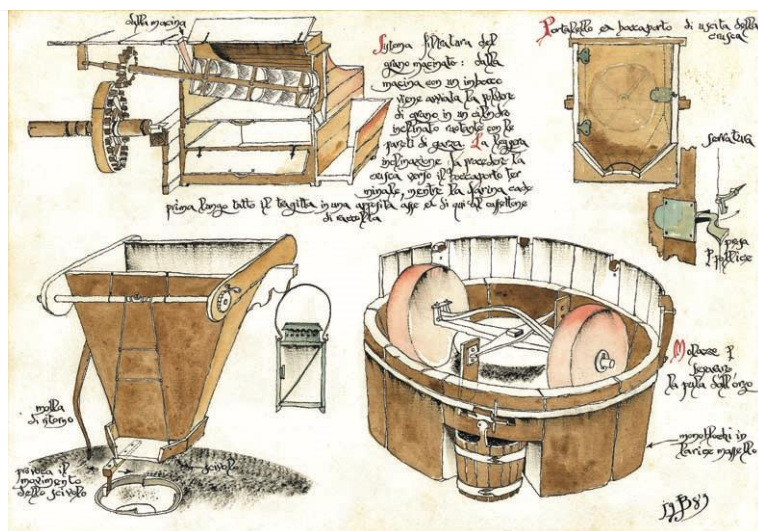 dalla macina
Sistema filtratura del
grano macinato: dalla
macina con un imbocco
viene avviata la polvere
di grano in un cilindro
inclinato rotante con le
pareti di garza. La leggera
inclinazione fa procedere la
crusca verso il boccaporto ter
minale, mentre la farina cade
prima lungo tutto il tragitto in una apposita asse ed di qui al cassettone
di raccolta
Portabello ed boccaporto di uscita della
crusca
serratura
presa
p pollice
molla
di ritorno
provoca il
movimento
dello scivolo
scivolo
Molasse p
separare
la pula dall'orzo
monoblocchi in
larice massello
B 89